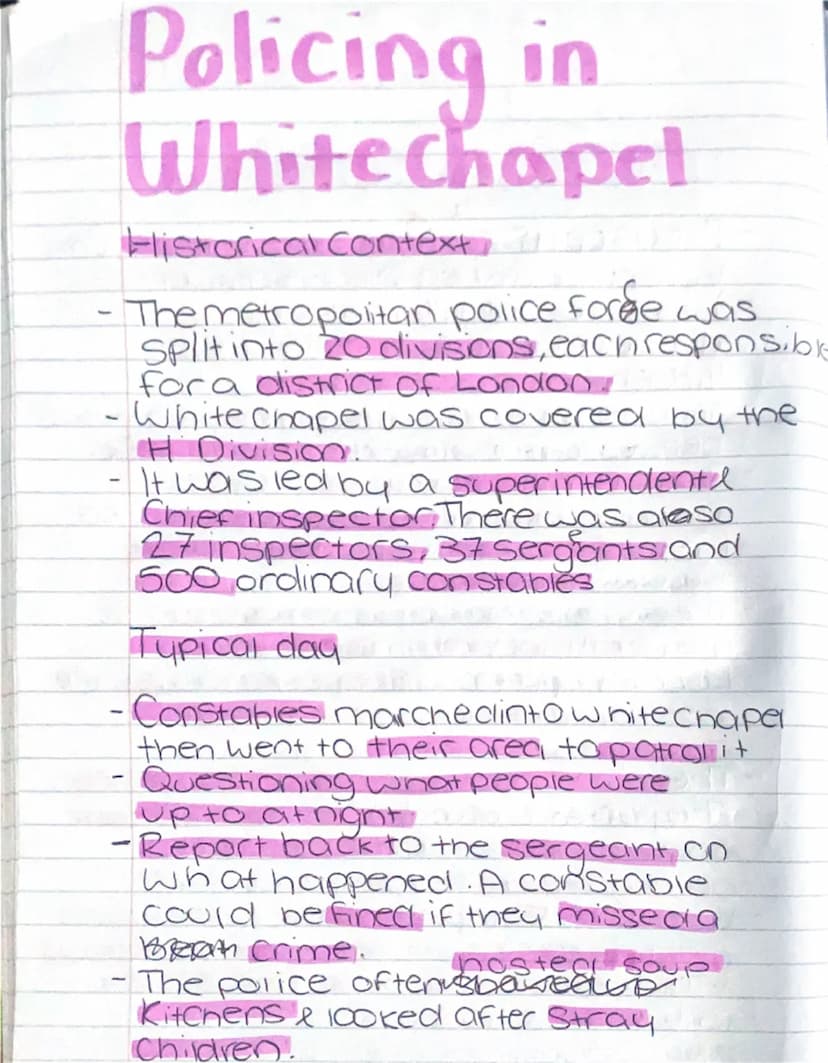 Policing in
Whitechapel
Historical Context
- The metropolitan police force was
split into 20 divisons, each responsible
for a district of London.
- Whitechapel was covered by the
H Division.
- It was led by a superintendent &
Chief inspector. There was also
27 inspectors, 37 sergeants and
500 ordinary constables
Typical day
- Constables marched into whitechapel
then went to their area to patrol it
- Questioning what people were
up to at night.
- Report back to the sergeant on
what happened. A constable
could be fined if they missed a
crime.
hosted soup
- The police often
Kitchens & looked after stray
Children.